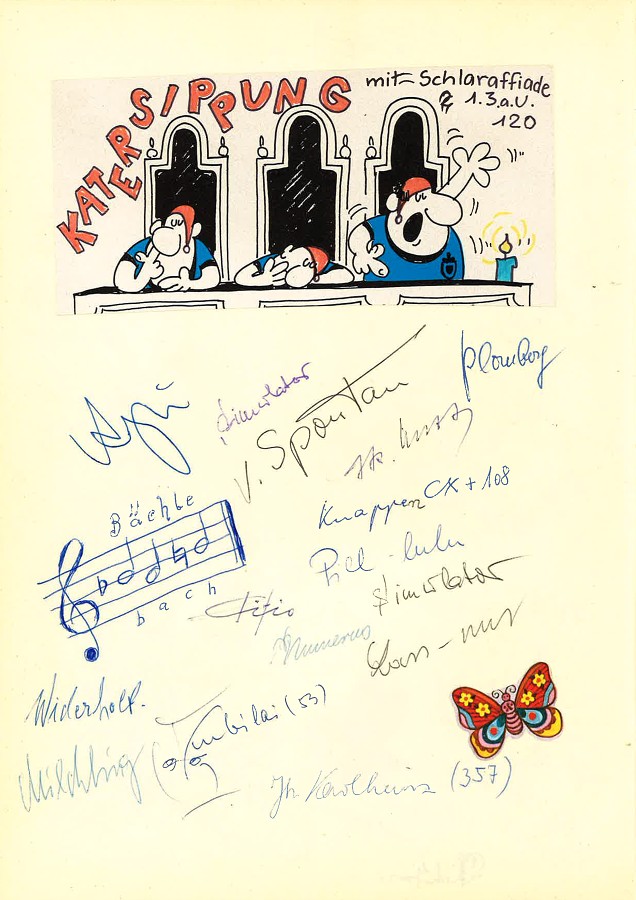 KATERSIPPUNG
mit Schlaraffiade
1.3.a.U.
120
Plomberg
Stimulator
v. Spontan
Jk.
Knappen CX + 108
Bächle
bach
Stimulator
Numerus
Lass-nur
Widerholt.
Kubilai (53)
Milchling
Jk Karlheinz (357)